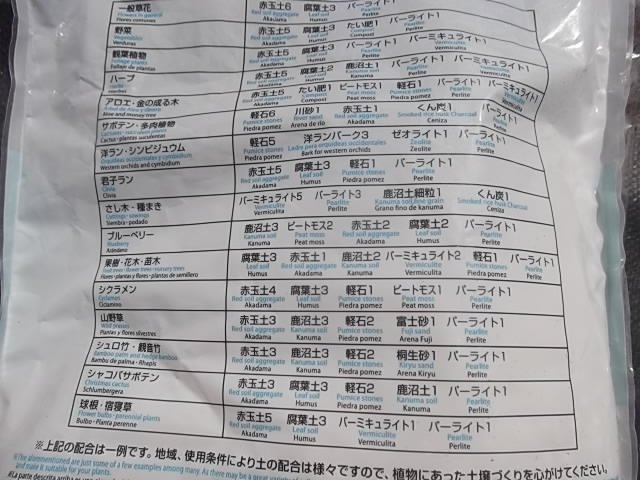 一般草花 赤玉土6 腐葉土3 パーライト1
Flowers in general Red soil aggregate Leaf soil Pearlite
Flores comunes Akadama Humus Perlite
野菜 赤玉土5 腐葉土3 たい肥1 パーライト1
Vegetables Red soil aggregate Leaf soil Compost Pearlite
Verduras Akadama Humus Compost Perlite
観葉植物 赤玉土5 腐葉土3 パーライト1 バーミキュライト1
Foliage plants Red soil aggregate Leaf soil Pearlite Vermiculite
Follaje de plantas Akadama Humus Perlite Vermiculite
ハーブ 赤玉土5 腐葉土2 鹿沼土1 パーライト1 バーミキュライト1
アロエ・金の成る木 赤玉土5 たい肥1 ピートモス1 軽石1 パーライト1 バーミキュライト1
Aloe and money tree Akadama Compost Peat moss Piedra pomez Perlite Vermiculite
サボテン・多肉植物 軽石6 川砂1 赤玉土1 くん炭1 パーライト1
Cactus・plantas suculentas Piedra pomez Arena de río Akadama Ceniza Perlite
洋ラン・シンビジュウム 軽石5 洋ランバーク3 ゼオライト1 パーライト1
Orquídeas occidentales y cymbidium Pumice stones Ladre para orquídeas occidentales Zeolite Pearlite
Western orchids and cymbidium Piedra pomez Bark for western orchids Zeolita Perlite
君子ラン 赤玉土5 腐葉土3 軽石1 パーライト1
Clivia Red soil aggregate Leaf soil Pumice stones Pearlite
Clivia Akadama Humus Piedra pomez Perlite
さし木・種まき バーミキュライト5 パーライト3 鹿沼土細粒1 くん炭1
Cuttings・sowings Vermiculite Pearlite Kanuma soil, fine grain Smoked rice husk Charcoal
Siembra・podado Vermiculite Perlite Grano fino de kanuma Ceniza
ブルーベリー 鹿沼土3 ピートモス2 赤玉土2 腐葉土2
Blueberry Kanuma soil Peat moss Red soil aggregate Leaf soil
Arándano Kanuma Peat moss Akadama Humus
果樹・花木・苗木 腐葉土3 赤玉土1 鹿沼土2 バーミキュライト2 軽石1 パーライト1
Fruit trees・flower trees・nursery trees Leaf soil Red soil aggregate Kanuma soil Vermiculite Pumice stones Pearlite
Flores・plantas y flores・plantas de semillero Humus Akadama Kanuma Vermiculite Piedra pomez Perlite
シクラメン 赤玉土4 腐葉土3 軽石1 ピートモス1 パーライト1
Cyclamen Red soil aggregate Leaf soil Pumice stones Peat moss Pearlite
Ciclamino Akadama Humus Piedra pomez Peat moss Perlite
山野草 赤玉土3 鹿沼土3 軽石2 富士砂1 パーライト1
Wild grasses Red soil aggregate Kanuma soil Pumice stones Fuji sand Pearlite
Plantas y flores silvestres Akadama Kanuma Piedra pomez Arena Fuji Perlite
シュロ竹・観音竹 赤玉土3 鹿沼土3 軽石2 桐生砂1 パーライト1
Bamboo palm and hedge bamboo Red soil aggregate Kanuma soil Pumice stones Kiryu sand Pearlite
Bambu de palma・Rhapis Akadama Kanuma Piedra pomez Arena Kiryu Perlite
シャコバサボテン 赤玉土3 腐葉土3 軽石2 鹿沼土1 パーライト1
Christmas cactus Red soil aggregate Leaf soil Pumice stones Kanuma soil Pearlite
Schlumbergera Akadama Humus Piedra pomez Kanuma Perlite
球根・宿寝草 赤玉土5 腐葉土3 バーミキュライト1 パーライト1
Flower Bulbs・perennial plants Red soil aggregate Leaf soil Vermiculite Pearlite
Bulbo・Planta perenne Akadama Humus Vermiculite Perlite
※上記の配合は一例です。地域、使用条件により土の配合は様々ですので、植物にあった土壌づくりを心がけてください。
※The aforementioned are just some of a few examples among many. As there may be a great variety of
and make it suitable for your plants.